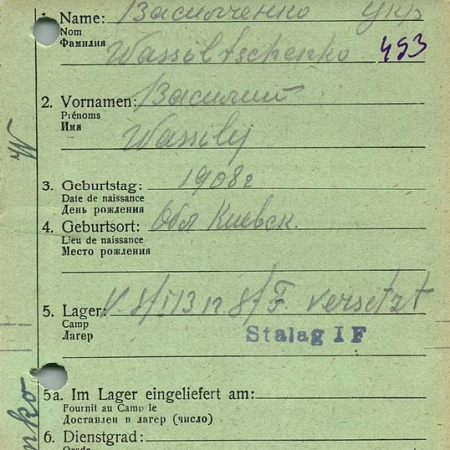 1. Name: Василченко укр
Nom
Фамилия
Wassiltschenko 493
2. Vornamen: Василий
Prénoms
Имя
Wassilij
W
3. Geburtstag: 1908г
Date de naissance
День рождения
4. Geburtsort: Обл Киевск.
Lieu de naissance
Место рождения
5. Lager: versetzt
Camp
Лагер
Stalag I F
5a. Im Lager eingeliefert am:
Fournit au Camp le
Доставлен в лагер (число)
6. Dienstgrad: